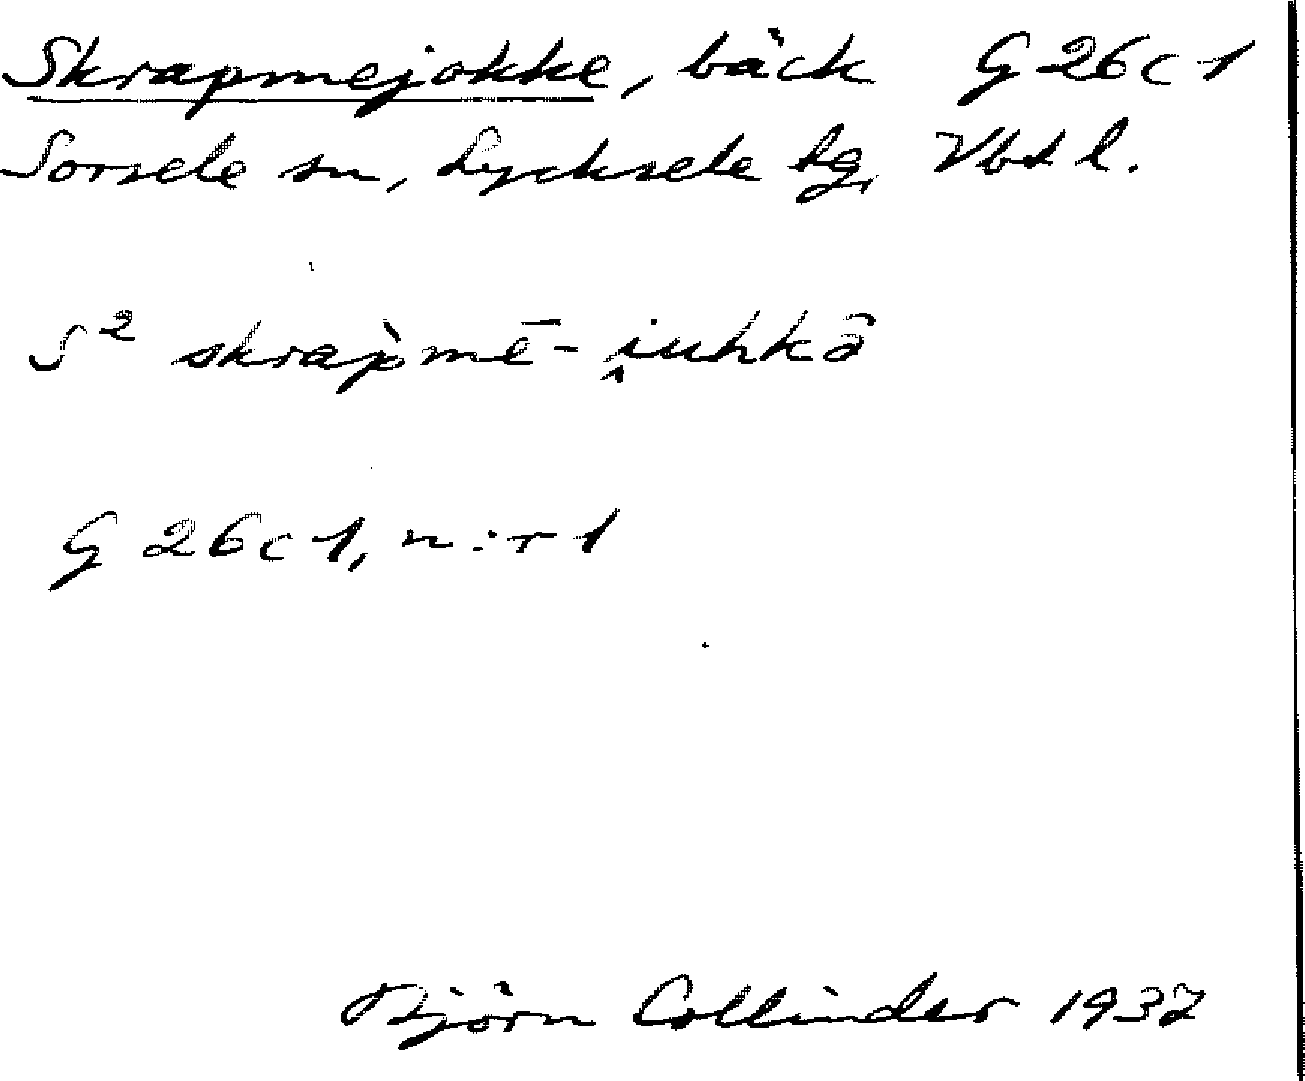 Skrapmejokke, bäck G 26 c 1
Sorsele sn, Lycksele tg, Vbtl.
S² skrap̀mē-i̯uhkâ
G 26 c 1, n:r 1
Björn Collinder 1937